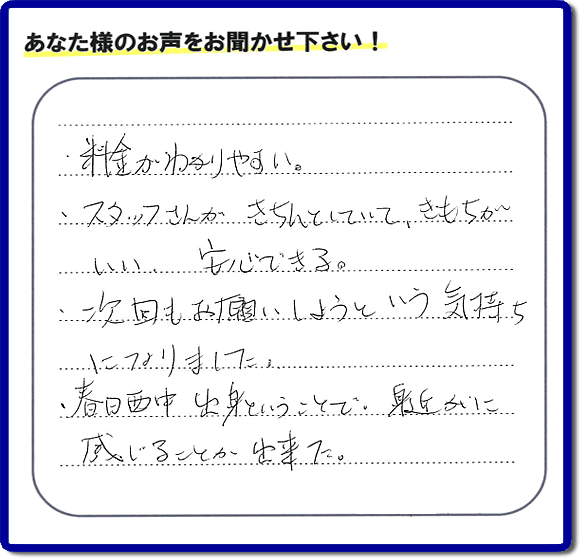 あなた様のお声をお聞かせ下さい！
・料金がわかりやすい。
・スタッフさんが きちんとしていて、きもちが
いい、 安心できる。
・次回もお願いしようという気持ち
になりました。
・春日西中 出身ということで、身近かに
感じることが出来た。